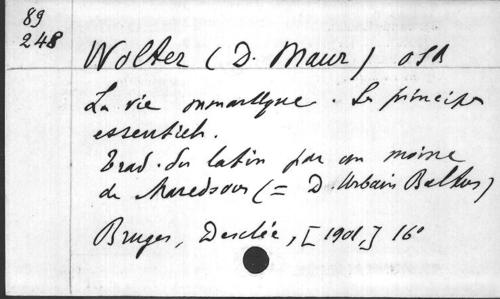 89
248
Wolter (D. Maur) OSB
La vie monastique. Les principes
essentiels.
Trad. du latin par un moine
de Maredsous (= D. Urbain Baltus)
Bruges, Desclée, [1901,] 16°